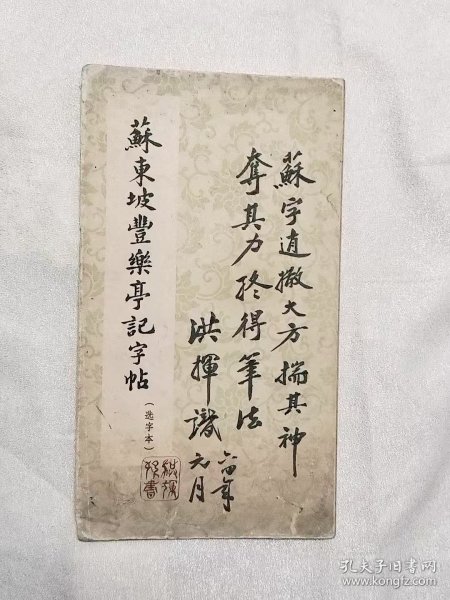 蘇字逍撒大方揣其神
奪其力終得筆法
洪揮識
年
元月
蘇東坡豐樂亭記字帖
（选字本）
孔夫子旧书网
www.kongfz.com